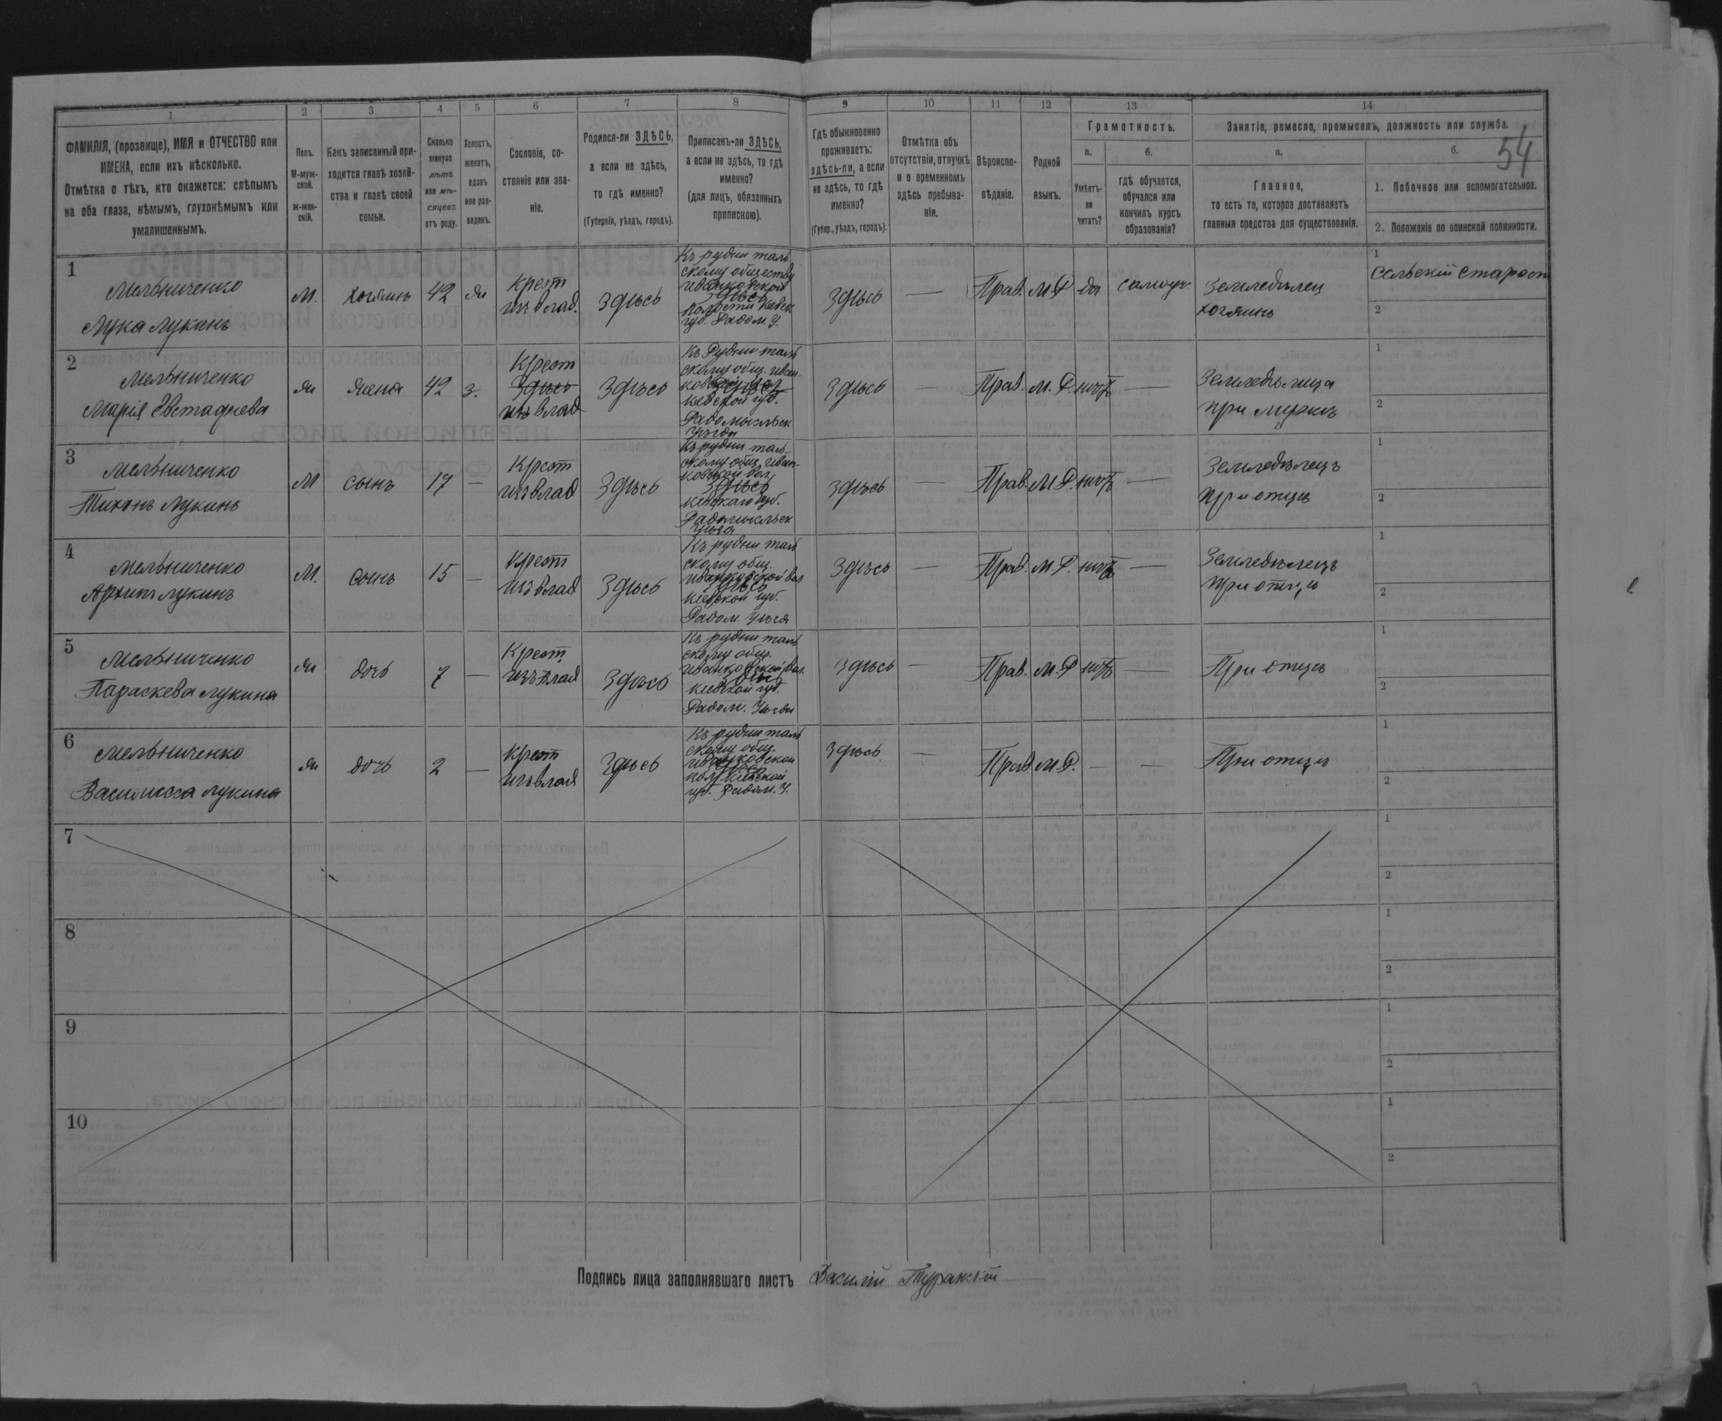 1 2 3 4 5 6 7 8 9 10 11 12 13 14
ФАМИЛІЯ, (прозвище), ИМЯ и ОТЧЕСТВО или
ИМЕНА, если ихъ нѣсколько.
Отмѣтка о тѣхъ, кто окажется: слѣпымъ
на оба глаза, нѣмымъ, глухонѣмымъ или
умалишеннымъ.
Полъ.
М-муж-
ской.
Ж-жен-
скій.
Какъ записанный при-
ходится главѣ хозяй-
ства и главѣ своей
семьи.
Сколько
минуло
лѣтъ
или мѣ-
сяцевъ
отъ роду.
Холостъ,
женатъ,
вдовъ
или раз-
веденъ.
Сословіе, со-
стояніе или зва-
ніе.
Родился-ли ЗДѢСЬ,
а если не здѣсь,
то гдѣ именно?
(Губернія, уѣздъ, городъ).
Приписанъ-ли ЗДѢСЬ,
а если не здѣсь, то гдѣ
именно?
(для лицъ, обязанныхъ
припискою).
Гдѣ обыкновенно
проживаетъ:
здѣсь-ли, а если
не здѣсь, то гдѣ
именно?
(Губер., уѣздъ, городъ).
Отмѣтка объ
отсутствіи, отлучкѣ
и о временномъ
здѣсь пребыва-
ніи.
Вѣроиспо-
вѣданіе.
Родной
языкъ.
Грамотность.
а.
Умѣетъ-
ли
читать?
б.
гдѣ обучается,
обучался или
кончилъ курсъ
образованія?
Занятіе, ремесло, промыселъ, должность или служба.
а.
Главное,
то есть то, которое доставляетъ
главныя средства для существованія.
б.
54
1. Побочное или вспомогательное.
2. Положеніе по воинской повинности.
1
Мельниченко
Лука Лукинъ
М.
хозяинъ
42
ж
Крест
изъ влад.
здѣсь
Къ рудни таль
скому обществу
иванковской
здѣсь
волости Киевск
губ. Радом. У.
здѣсь
—
Прав.
М. Р.
да
самоуч
Земледѣлец
хозяинъ
1
сельскій старост
2
2
Мельниченко
Марія Евстафиева
ж
жена
42
з.
Крест
здѣсь
изъ влад
здѣсь
Къ Рудни таль
скому общ. иван
здѣсь
Киевской губ.
Радомысльск
Уѣзда
здѣсь
—
Прав.
М. Р.
нѣтъ
—
Земледѣлица
при мужѣ
1
2
3
Мельниченко
Тихонъ Лукинъ
М
сынъ
17
—
Крест
изъ влад
здѣсь
Къ рудни таль
скому общ. иван-
ковской вол.
здѣсь
Радомысльск
Уѣзда
здѣсь
—
Прав.
М. Р.
нѣтъ
—
Земледѣлецъ
при отцѣ
1
2
4
Мельниченко
Архипъ Лукинъ
М.
сынъ
15
—
Крест
изъ влад
здѣсь
Къ рудни таль
скому общ.
иванковской вол
здѣсь
Киевской губ.
Радом. Уѣзд
здѣсь
—
Прав.
М. Р.
нѣтъ
—
Земледѣлецъ
при отцѣ
1
2
5
Мельниченко
Параскева Лукина
ж
дочь
7
—
Крест
изъ влад
здѣсь
Къ рудни таль
скому общ.
иванковской вол.
здѣсь
Киевской губ.
Радом. Уѣзда
здѣсь
—
Прав.
М. Р
нѣтъ
—
При отцѣ
1
2
6
Мельниченко
Василисса Лукина
ж
дочь
2
—
Крест
изъ влад
здѣсь
Къ рудни таль
скому общ.
иванковской
вол. Киевской
губ. Радом. У.
здѣсь
—
Прав
М. Р.
—
—
При отцѣ
1
2
7
1
2
8
1
2
9
1
2
10
1
2
Подпись лица заполнявшаго листъ Василій Туранскій